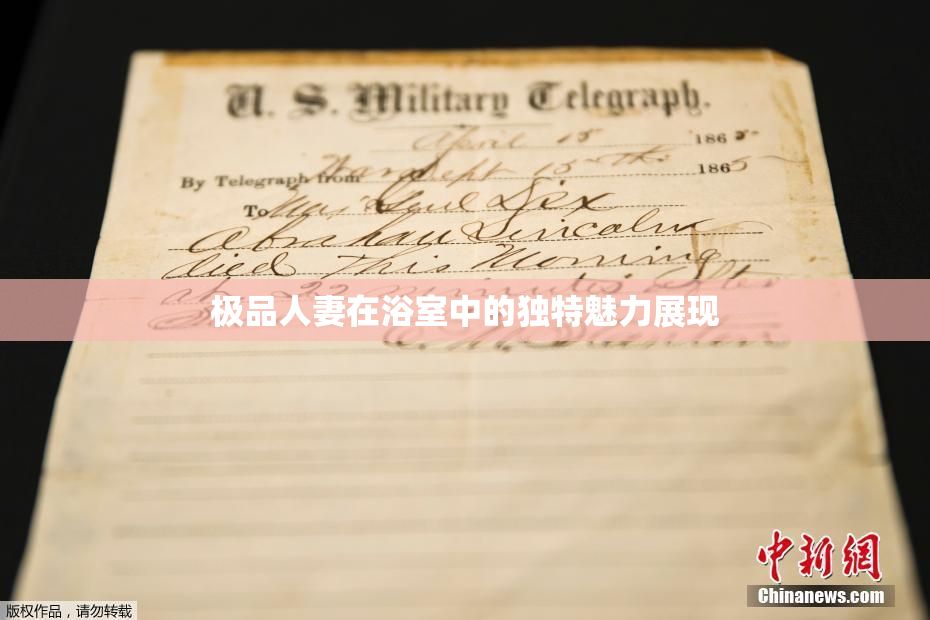 U. S. Military Telegraph.
April 15 1865
By Telegraph from War Dept 15th 1865
To Maj Genl Dix
Abraham Lincoln
died This Morning
at 22 minutes after
极品人妻在浴室中的独特魅力展现
中新网
Chinanews.com
版权作品，请勿转载